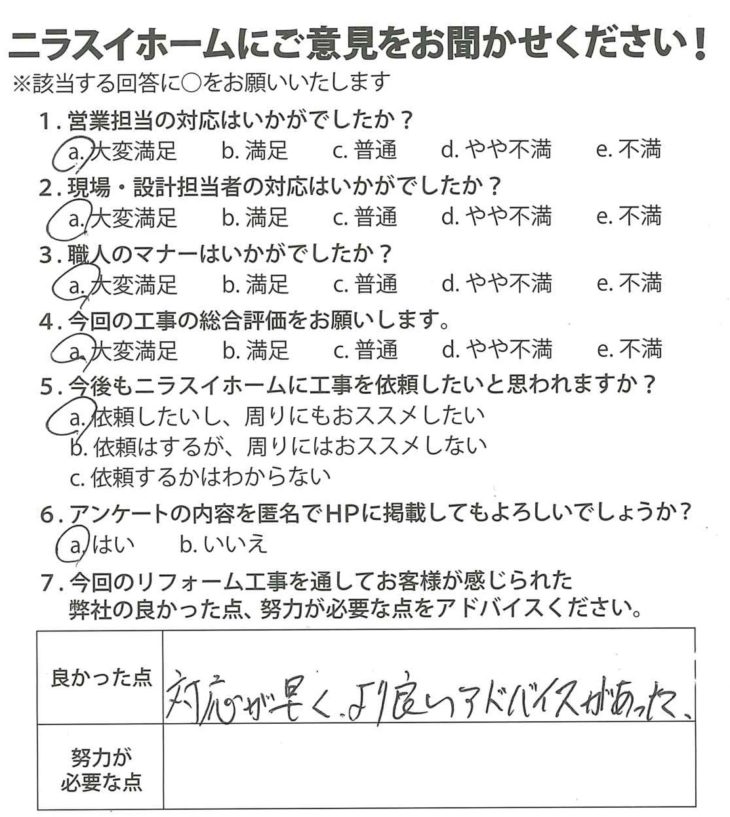 ニラスイホームにご意見をお聞かせください！
※該当する回答に○をお願いいたします
1．営業担当の対応はいかがでしたか？
a. 大変満足　b. 満足　c. 普通　d. やや不満　e. 不満
2．現場・設計担当者の対応はいかがでしたか？
a. 大変満足　b. 満足　c. 普通　d. やや不満　e. 不満
3．職人のマナーはいかがでしたか？
a. 大変満足　b. 満足　c. 普通　d. やや不満　e. 不満
4．今回の工事の総合評価をお願いします。
a. 大変満足　b. 満足　c. 普通　d. やや不満　e. 不満
5．今後もニラスイホームに工事を依頼したいと思われますか？
a. 依頼したいし、周りにもおススメしたい
b. 依頼はするが、周りにはおススメしない
c. 依頼するかはわからない
6．アンケートの内容を匿名でHPに掲載してもよろしいでしょうか？
a. はい　b. いいえ
7．今回のリフォーム工事を通してお客様が感じられた
弊社の良かった点、努力が必要な点をアドバイスください。
良かった点
対応が早く、より良いアドバイスがあった、
努力が
必要な点